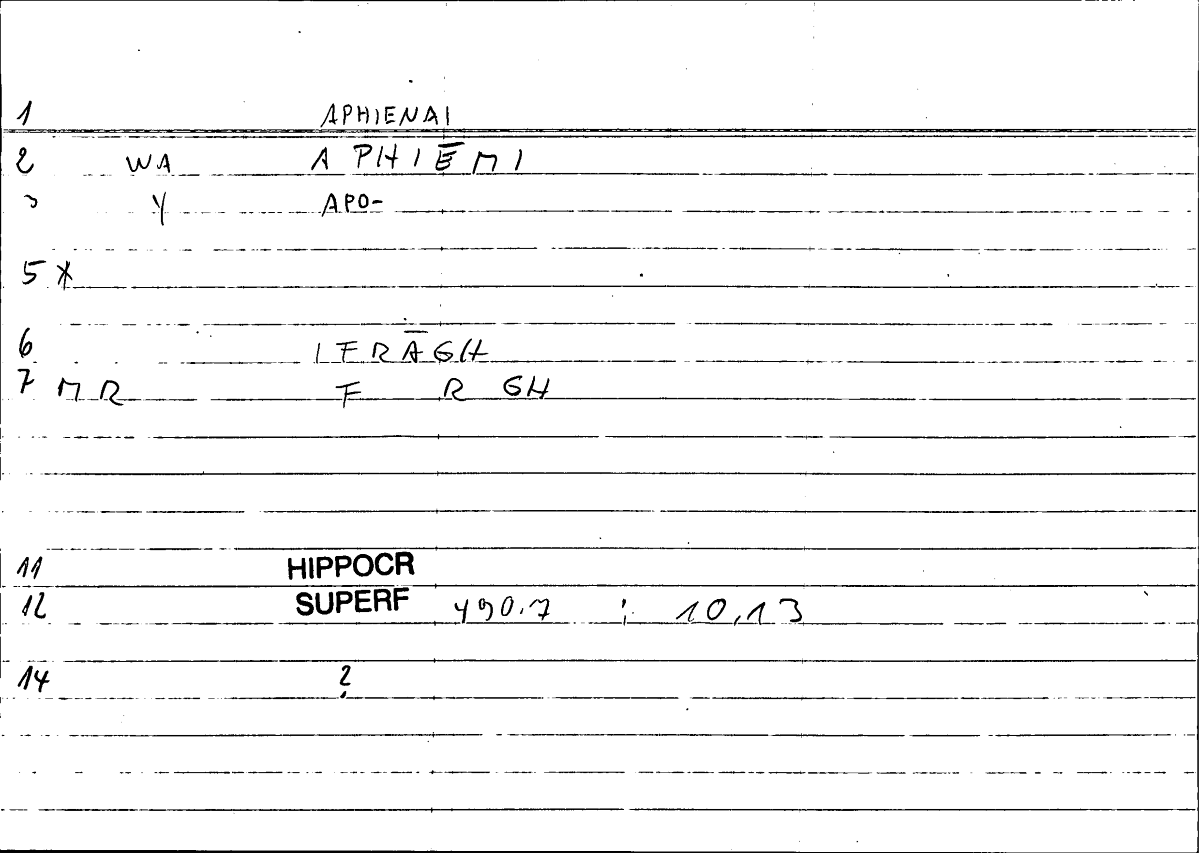 1 APHIENAI
2 WA APHIĒMI
3 Y APO-
5 *
6 IFRĀGH
7 MR F R GH
11 HIPPOCR
12 SUPERF 490.7 ; 10,13
14 ?